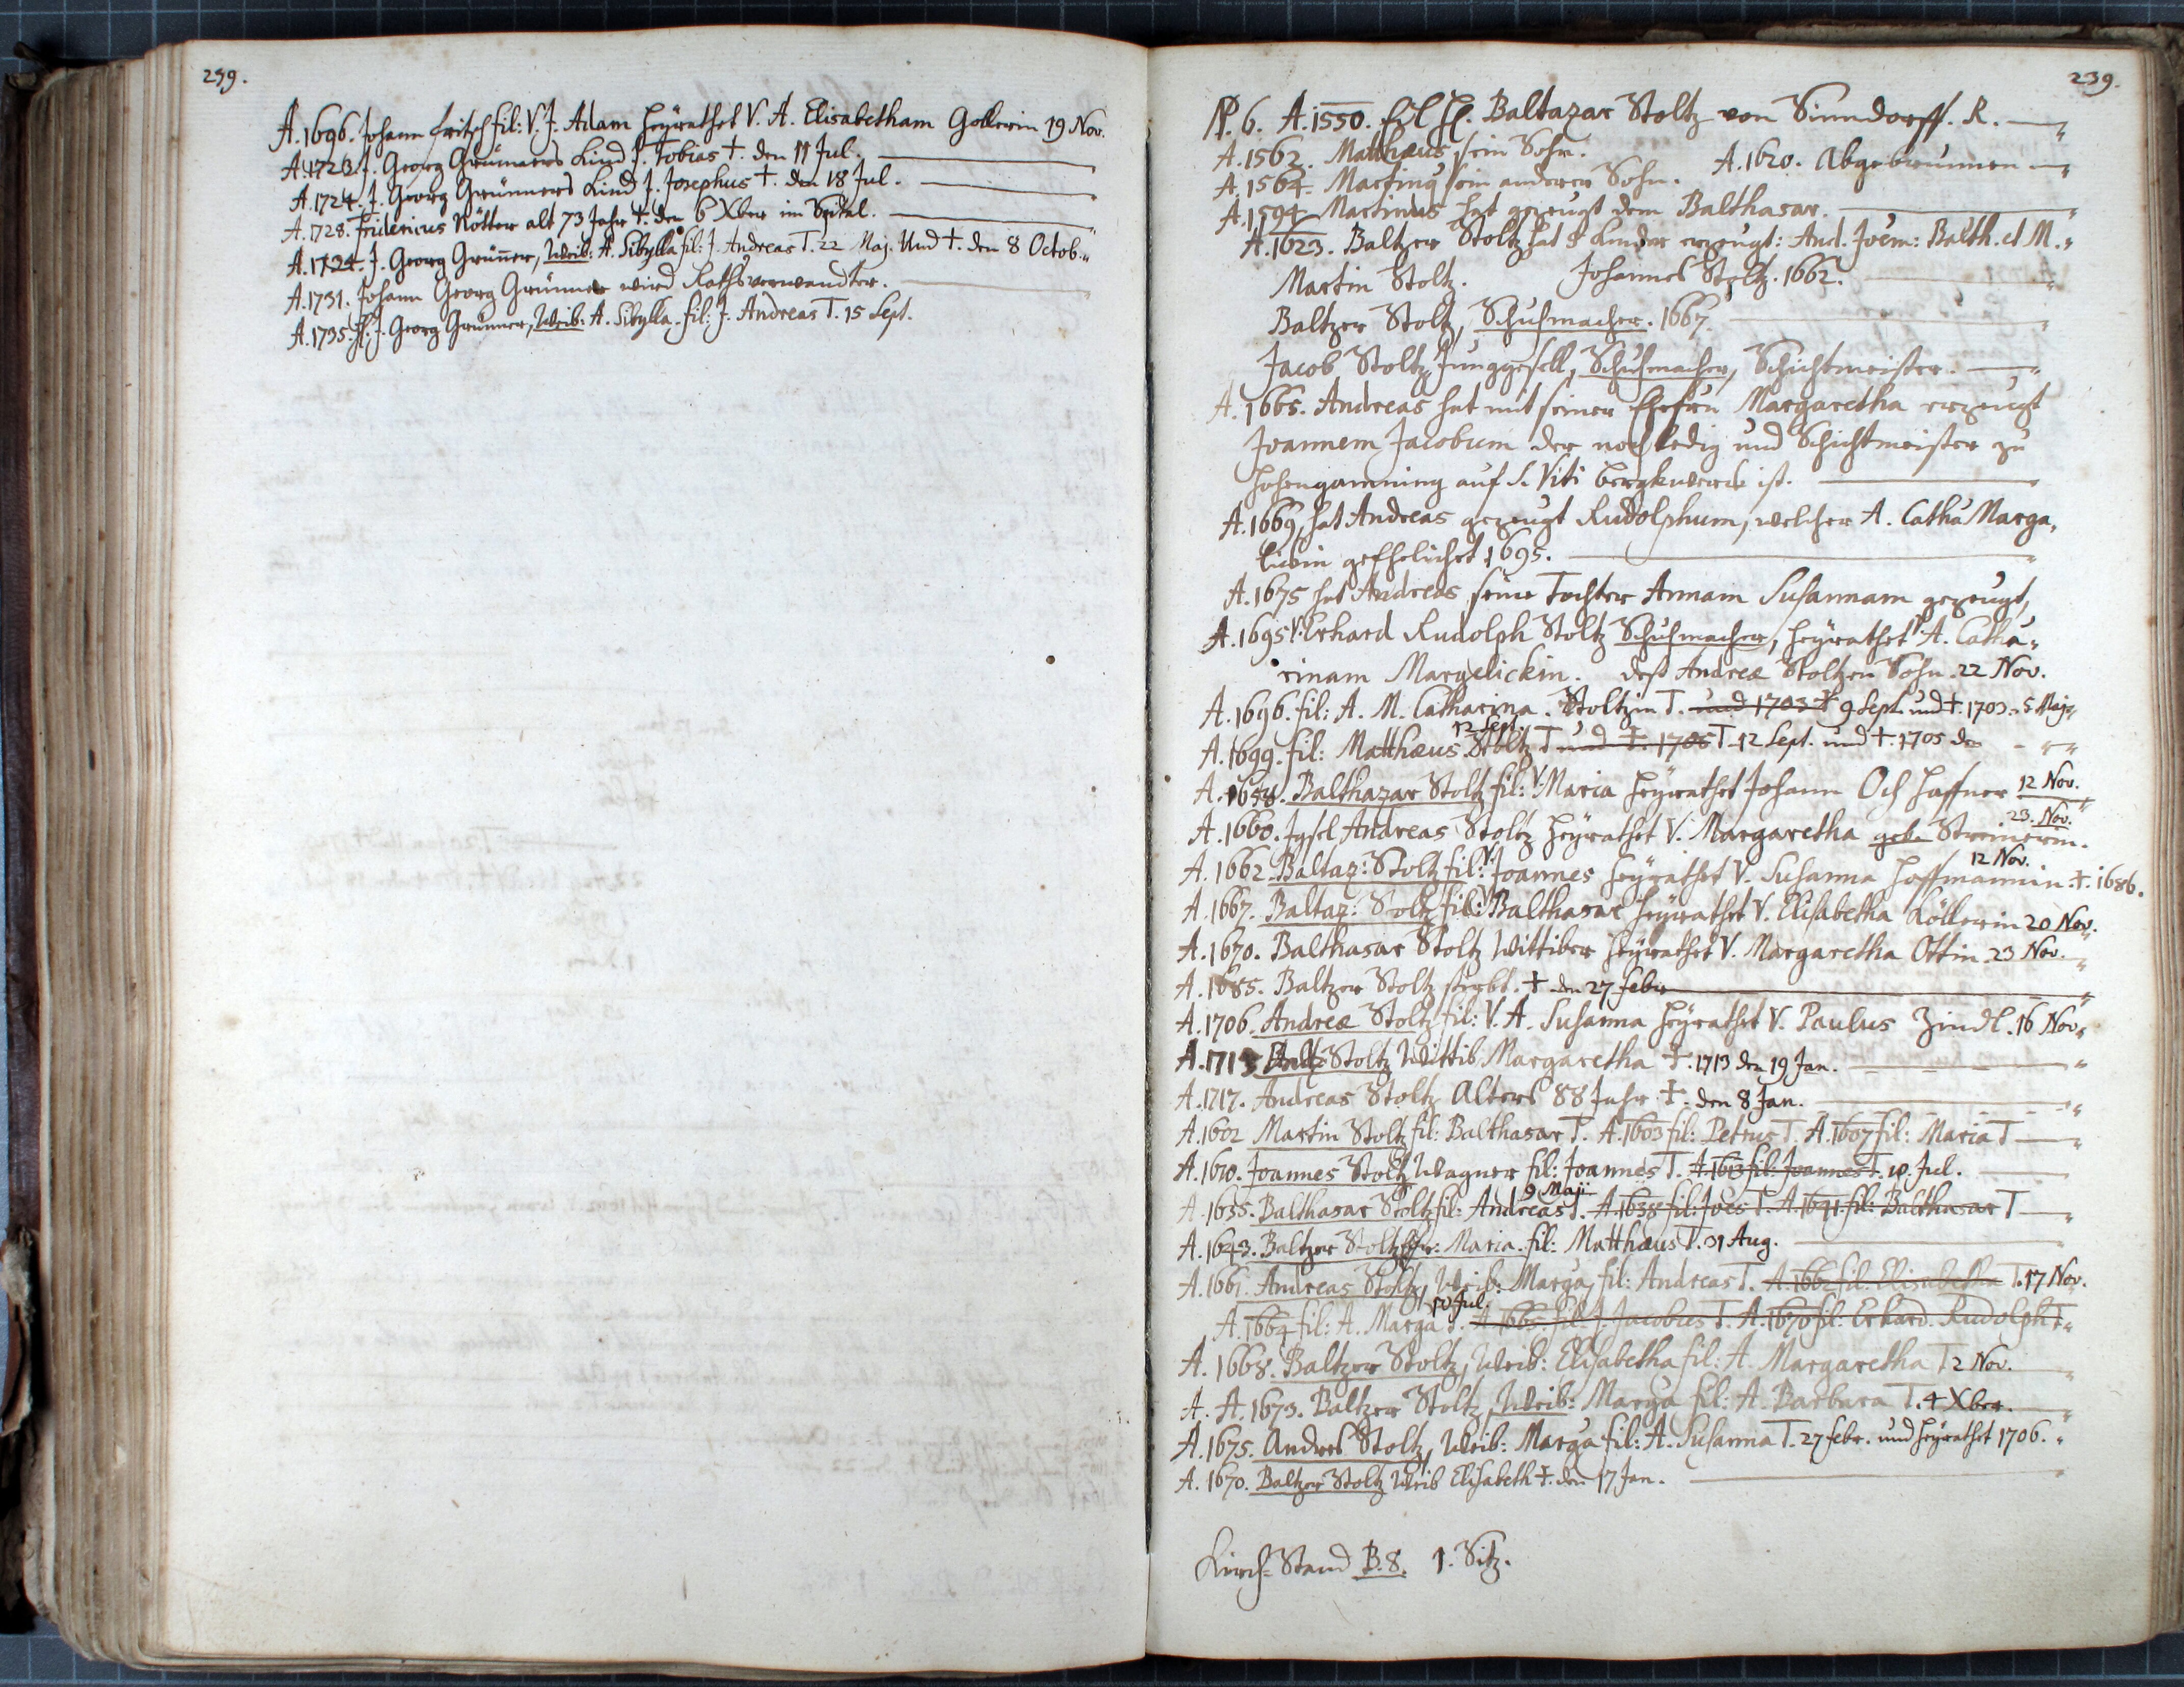 239.
A. 1696. Johann Fritsch fil: V. J. Adam heÿrathet V. A. Elisabetham Gollerin 19 Nov.
A. 1723. J. Georg Grünners Kind J. Tobias †. den 11 Jul.
A. 1724. J. Georg Grünners Kind J. Josephus †. den 18 Jul.
A. 1728. Fridericus Rötter alt 73 Jahr †. den 6 Xber im Spital.
A. 1734. J. Georg Grünner, Weib: A. Sibylla fil: J. Andreas T. 22 Maj. Und †. den 8 Octob.
A. 1731. Johann Georg Grünner wird Rathsverwandter.
A. 1735. H. J. Georg Grünner, Weib: A. Sibylla. fil: J. Andreas T. 15 Sept.
239.
N. 6. A. 1550. Baltazar Stoltz von Sinndorff. R.
A. 1562. Matthæus sein Sohn.
A. 1564. Martinus sein anderer Sohn. A. 1620. Abgebrunnen
A. 1594. Martinus hat gezeugt den Balthasar.
A. 1623. Baltzer Stoltz hat 8 Kinder erzeugt: And. Joem: Balth. et M.
Martin Stoltz. Johannes Stoltz. 1662.
Baltzer Stoltz, Schuhmacher. 1667.
Jacob Stoltz Junggesell, Schuhmacher, Schichtmeister.
A. 1665. Andreas hat mit seiner Ehefrau Margaretha erzeugt
Joannem Jacobum der noch ledig und Schichtmeister zu
auf S. Viti bergkwerck ist.
A. 1669, hat Andreas gezeugt Rudolphum, welcher A. Catha Marga,
lickin geehelichet 1695.
A. 1675 hat Andreas seine Tochter Annam Susannam gezeugt,
A. 1695. V. Erhard Rudolph Stoltz Schuhmacher, heÿrathet A. Catha-
rinam Margelickin. deß Andreæ Stoltzen Sohn. 22 Nov.
A. 1696. fil: A. M. Catharina. Stoltzin T. und 1703 † 9 Sept. und †. 1703. 5 Maj.
12 Sept.
A. 1699. fil: Matthæus Stoltz T und †. 1705 T 12 Sept. und †. 1705 den
A. 1658. Balthazar Stoltz fil: V. Maria heÿrathet Johann Och Haffner 12 Nov.
23. Nov.
A. 1660. Andreas Stoltz heÿrathet V. Margaretha
12 Nov.
A. 1662. Baltaz: Stoltz fil: V. Joannes heÿrathet V. Susanna Hoffmannin. †. 1686.
A. 1667. Baltaz: Stoltz fil: V. Balthasar heÿrathet V. Elisabetha Köllerin 20 Nov.
A. 1670. Balthasar Stoltz Wittiber heÿrathet V. Margaretha Ottin. 23 Nov.
A. 1685. Baltzer Stoltz sterbt. † den 27 febr
A. 1706. Andreæ Stoltz fil: V. A. Susanna heÿrathet V. Paulus Zindl. 16 Nov.
A. 1713 Baltz Stoltz Wittib Margaretha †. 1713 den 19 Jan.
A. 1717. Andreas Stoltz Alters 88 Jahr †. den 8 Jan.
A. 1602 Martin Stoltz fil: Balthasar T. A. 1603 fil: Petrus T. A. 1607 fil: Maria T
A. 1610. Joannes Stoltz Wagner fil: Joannes T. A. 1613 fil: Joannes T. 10. Jul.
9 Maji
A. 1635. Balthasar Stoltz fil: Andreas T. A. 1638 fil: Joes T. A. 1641. fil: Balthasar T
A. 1643. Baltzer Stoltz Maria. fil: Matthæus T. 31 Aug.
A. 1661. Andreas Stoltz, Weib: Marga, fil: Andreas T. A. 1662 fil. Elisabetha T. 17 Nov.
10 Jul.
A. 1664 fil: A. Marga T. A. 1665. fil: J. Jacobus T. A. 1670 fil: Erhard. Rudolph T.
A. 1668. Baltzer Stoltz, Weib: Elisabetha fil: A. Margaretha T 2 Nov.
A. A. 1673. Baltzer Stoltz, Weib: Marga fil: A. Barbara T. 4 Xber.
A. 1675. Andres Stoltz, Weib: Marga fil: A. Susanna T. 27 febr. und heÿrathet 1706.
A. 1670. Baltzer Stoltz Weib Elisabeth †. den 17 Jan.
Kirch-Stand B. 8. 1. Sitz.